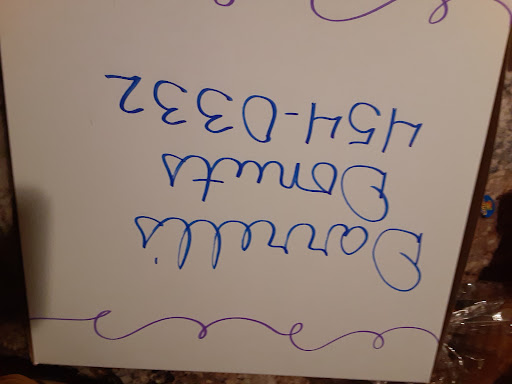 Darrell's
Donuts
454-0332